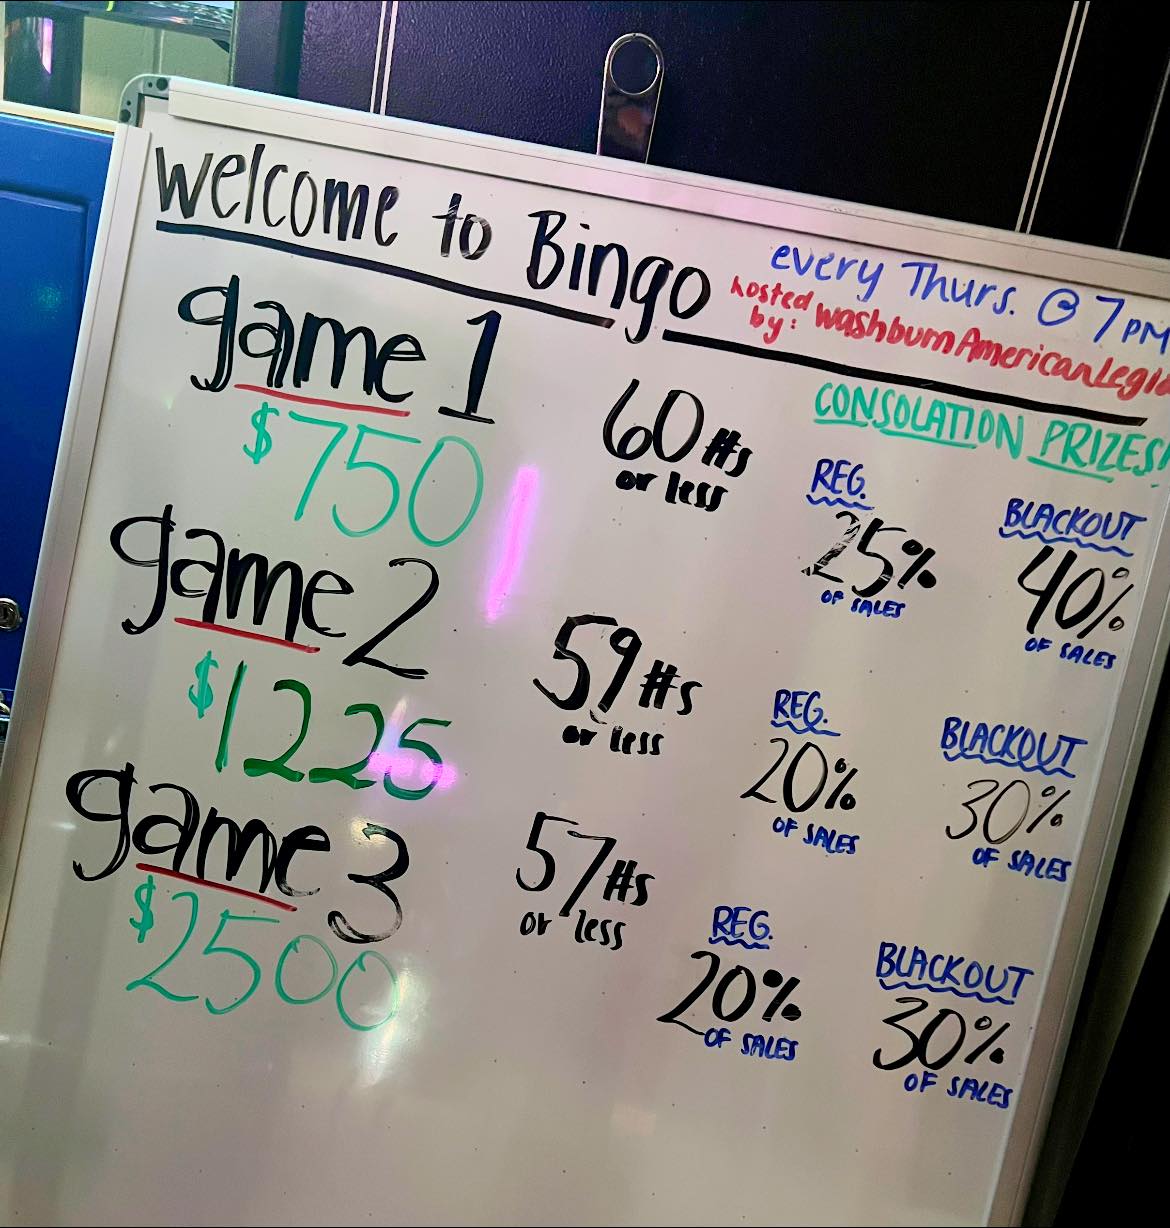 Welcome to Bingo
every Thurs. @ 7PM
hosted
by: WashburnAmericanLegio
CONSOLATION PRIZES!
game 1
$750
60 #s
or less
REG.
25%
OF SALES
BLACKOUT
40%
OF SALES
game 2
$1225
59 #s
or less
REG.
20%
OF SALES
BLACKOUT
30%
OF SALES
game 3
$2500
57 #s
or less
REG.
20%
OF SALES
BLACKOUT
30%
OF SALES